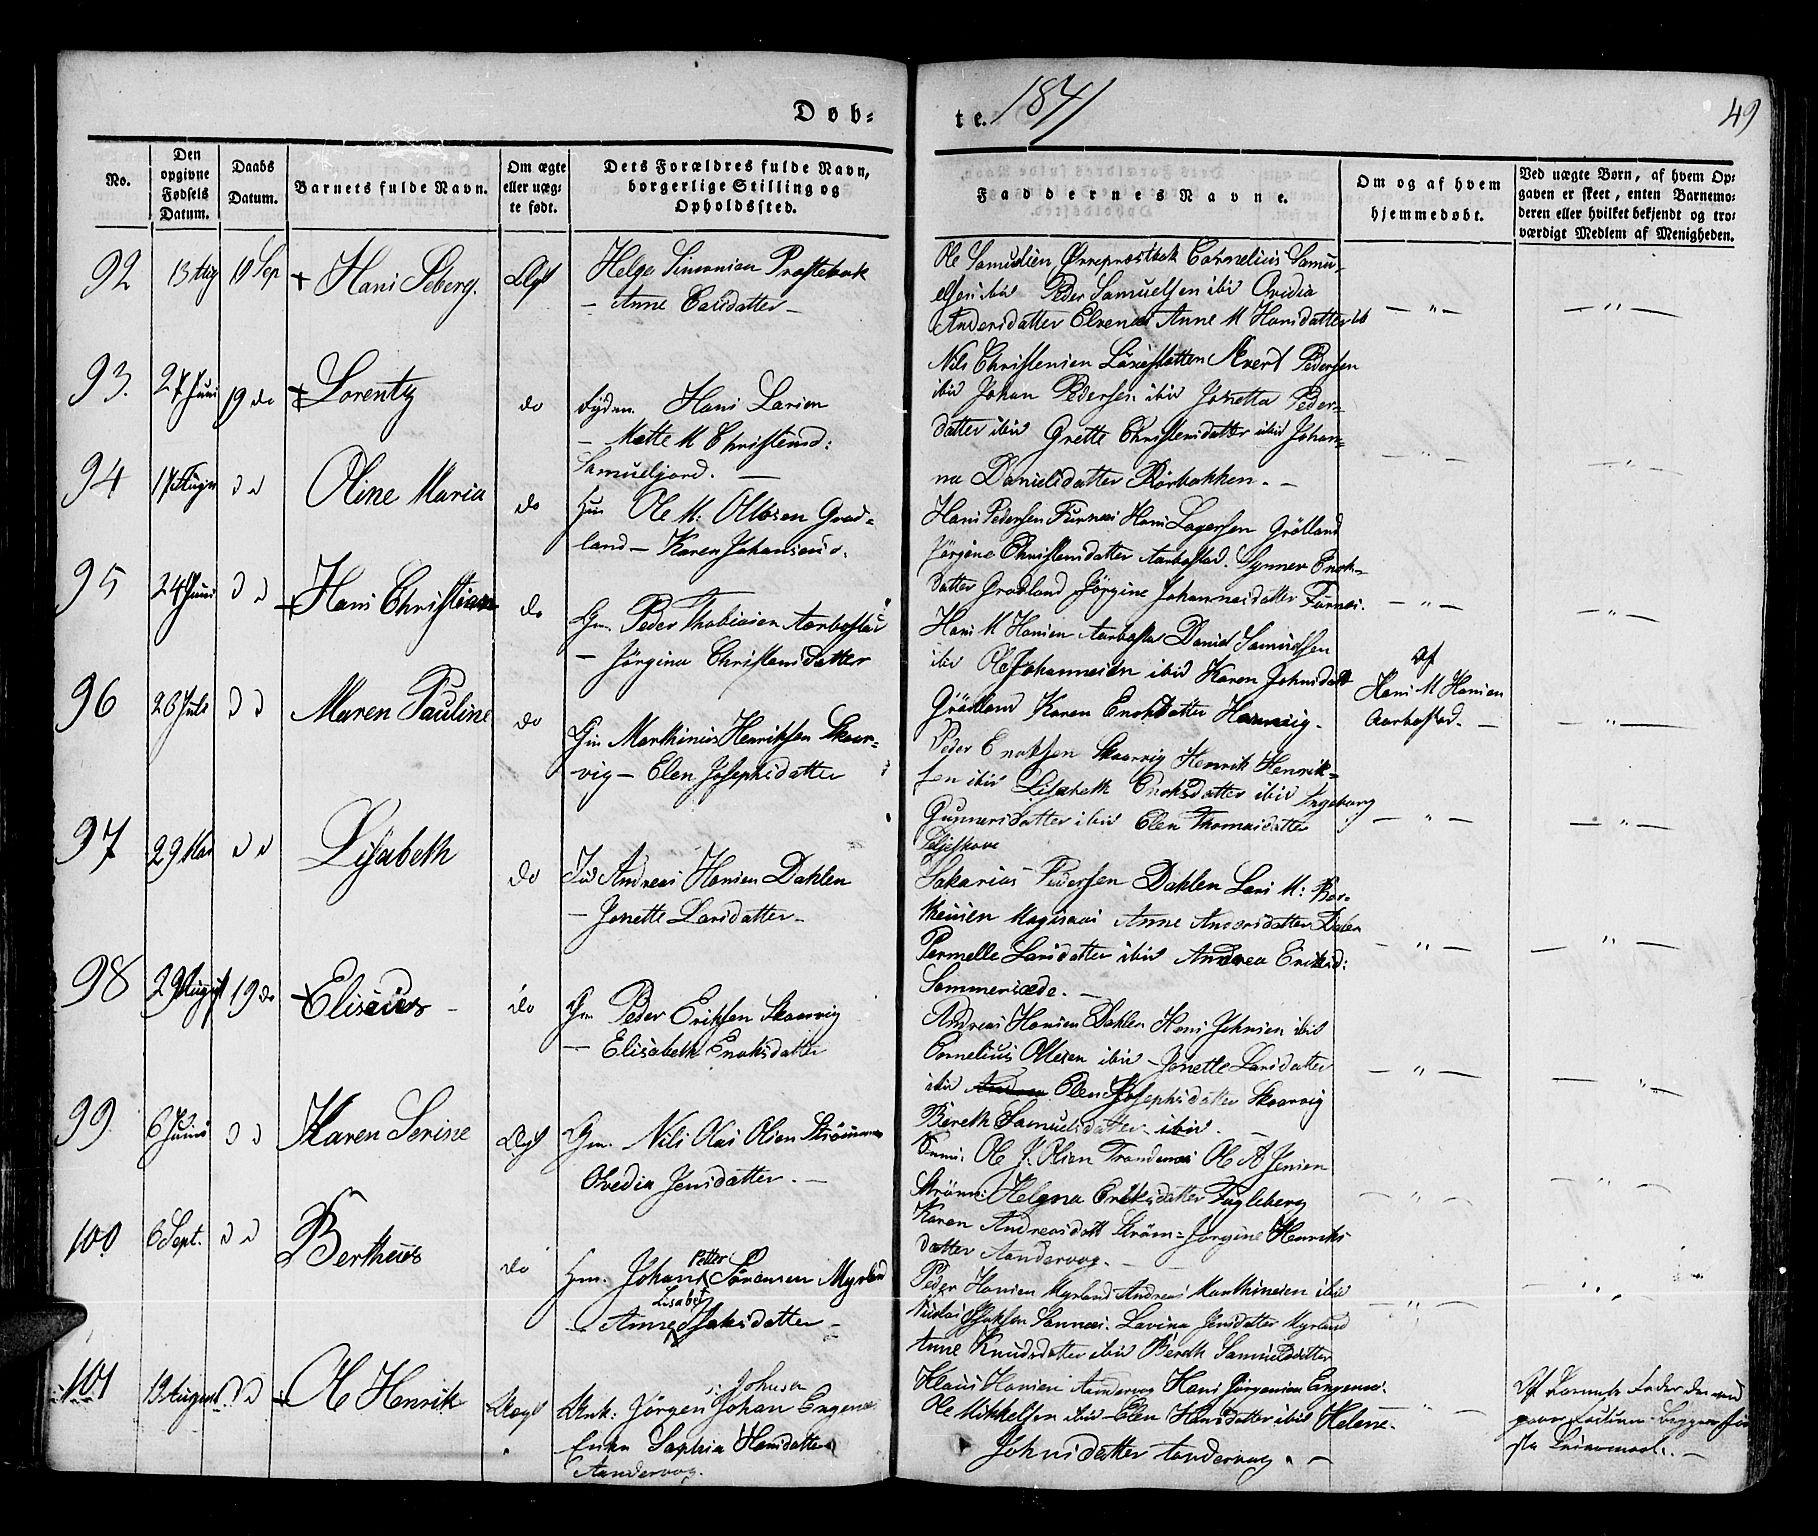 Døb-
te. 1841
49
No.
Den opgivne Fødsels Datum.
Daabs Datum.
Barnets fulde Navn.
Om ægte eller uæg-te født.
Dets Forældres fulde Navn, borgerlige Stilling og Opholdssted.
Faddernes Navne.
Om og af hvem hjemmedøbt.
Ved uægte Børn, af hvem Op-gaven er skeet, enten Barnemo-deren eller hvilket bekjendt og tro-værdigt Medlem af Menigheden.
92 13 Aug 19 Sep + Hans Seberg. Ægt
Helge Simonsen Prestebak
- Anne Larsdatter -
Ole Samuelsen Cornelius Samu-
elsen ibid Peder Samuelsen ibid Ovidia
Andersdatter Elvenes Anne M Hansdatter ib
- " - - " -
93. 27 Juni 19 do + Lorentz do
Hans Larsen
- Mette M Christensd:
Samueljord. -
Nils Christensen Evert Pedersen
ibid Johan Pedersen ibid Jonetta Peder-
datter ibid Grette Christensdatter ibid Johan-
na Danielsdatter Rörbakken. -
94 17 August d d Oline Maria do
Ole M: Ollosen Grad-
land - Karen Johansensd.
Hans Pedersen Furnæs Hans Lagesen Grölland
Jörgine Christensdatter Aarbostad. Synnev Enok-
datter Gradland Jörgine Johannesdatter Furnæs.
95 24 Juni d d + Hans Christian do
Gm. Peder Thobiasen Aarbostad
- Jörgina Christensdatter
Hans M Hansen Aarbostad Daniel Samuelsen
ibid Ole Johannesen ibid Karen Johnsdatt
Grölland Karen Enoksdatter Hamnvig.
96 26 Juli d d Maren Pauline do
Gm Marthinus Henriksen Skaar-
vig - Elen Josephsdatter
Peder Enoksen Skaarvig Henrik Henrik-
sen ibid Lisabeth Enoksdatter ibid Ingeborg
Gunnersdatter ibid Elen Thomasdatter
Af
Hans M Hansen
Aarbostad. -
97 29 Mai d d Lisabeth do
Andreas Hansen Dahlen
- Jonette Larsdatter -
Sakarias Pedersen Dahlen Lars M:
Anne Andersdatter Dalen
Pernelle Larsdatter ibid Andrea Eriksd:
Sommersæde. -
98 29 August 19 do + Eliseus do
Gm Peder Eriksen Skaarvig
- Elisabeth Enoksdatter
Andreas Hansen Dahlen Hans Johnsen ibid
Cornelius Ollesen ibid - Jonette Larsdatter
ibid Elen Josephsdatter Skaarvig
Bereth Samuelsdatter ibid. -
99 6 Junii d d Karen Serine Ægt
Gm. Nils Olai Olsen Strömmen
Ovedia Jensdatter. -
Ole J. Olsen Trondenæs Ole A Jensen
Ström: Helena Eriksdatter Fugleberg
Karen Andreasdatt Ström - Jörgine Henriks
datter Aandervaag. -
100 6 Sept. d d Bertheus do
Petter
Hm. Johans Sörensen Myrland
Lisabet
- Anne Isaksdatter -
Peder Hansen Myrland Andreas Marthinesen ibid
Nicolai Isaksen Sannæs. Lavina Jensdatter Myrland
Anne Knudsdatter ibid Bereth Samuelsdatter
101 19 August d d + Ole Henrik Uægt
Johnsen
Unk: Jörgen Johan Engenæs
Enke Sophia Hansdatter
Aandervog.
Klaus Hansen Aandervog Hans Jörgensen Engenæs.
Ole Mikkelsen ibid - Elen Hansdatter ibid Helene
Johnsdatter Aandervaag. -
Af Barnets Fader